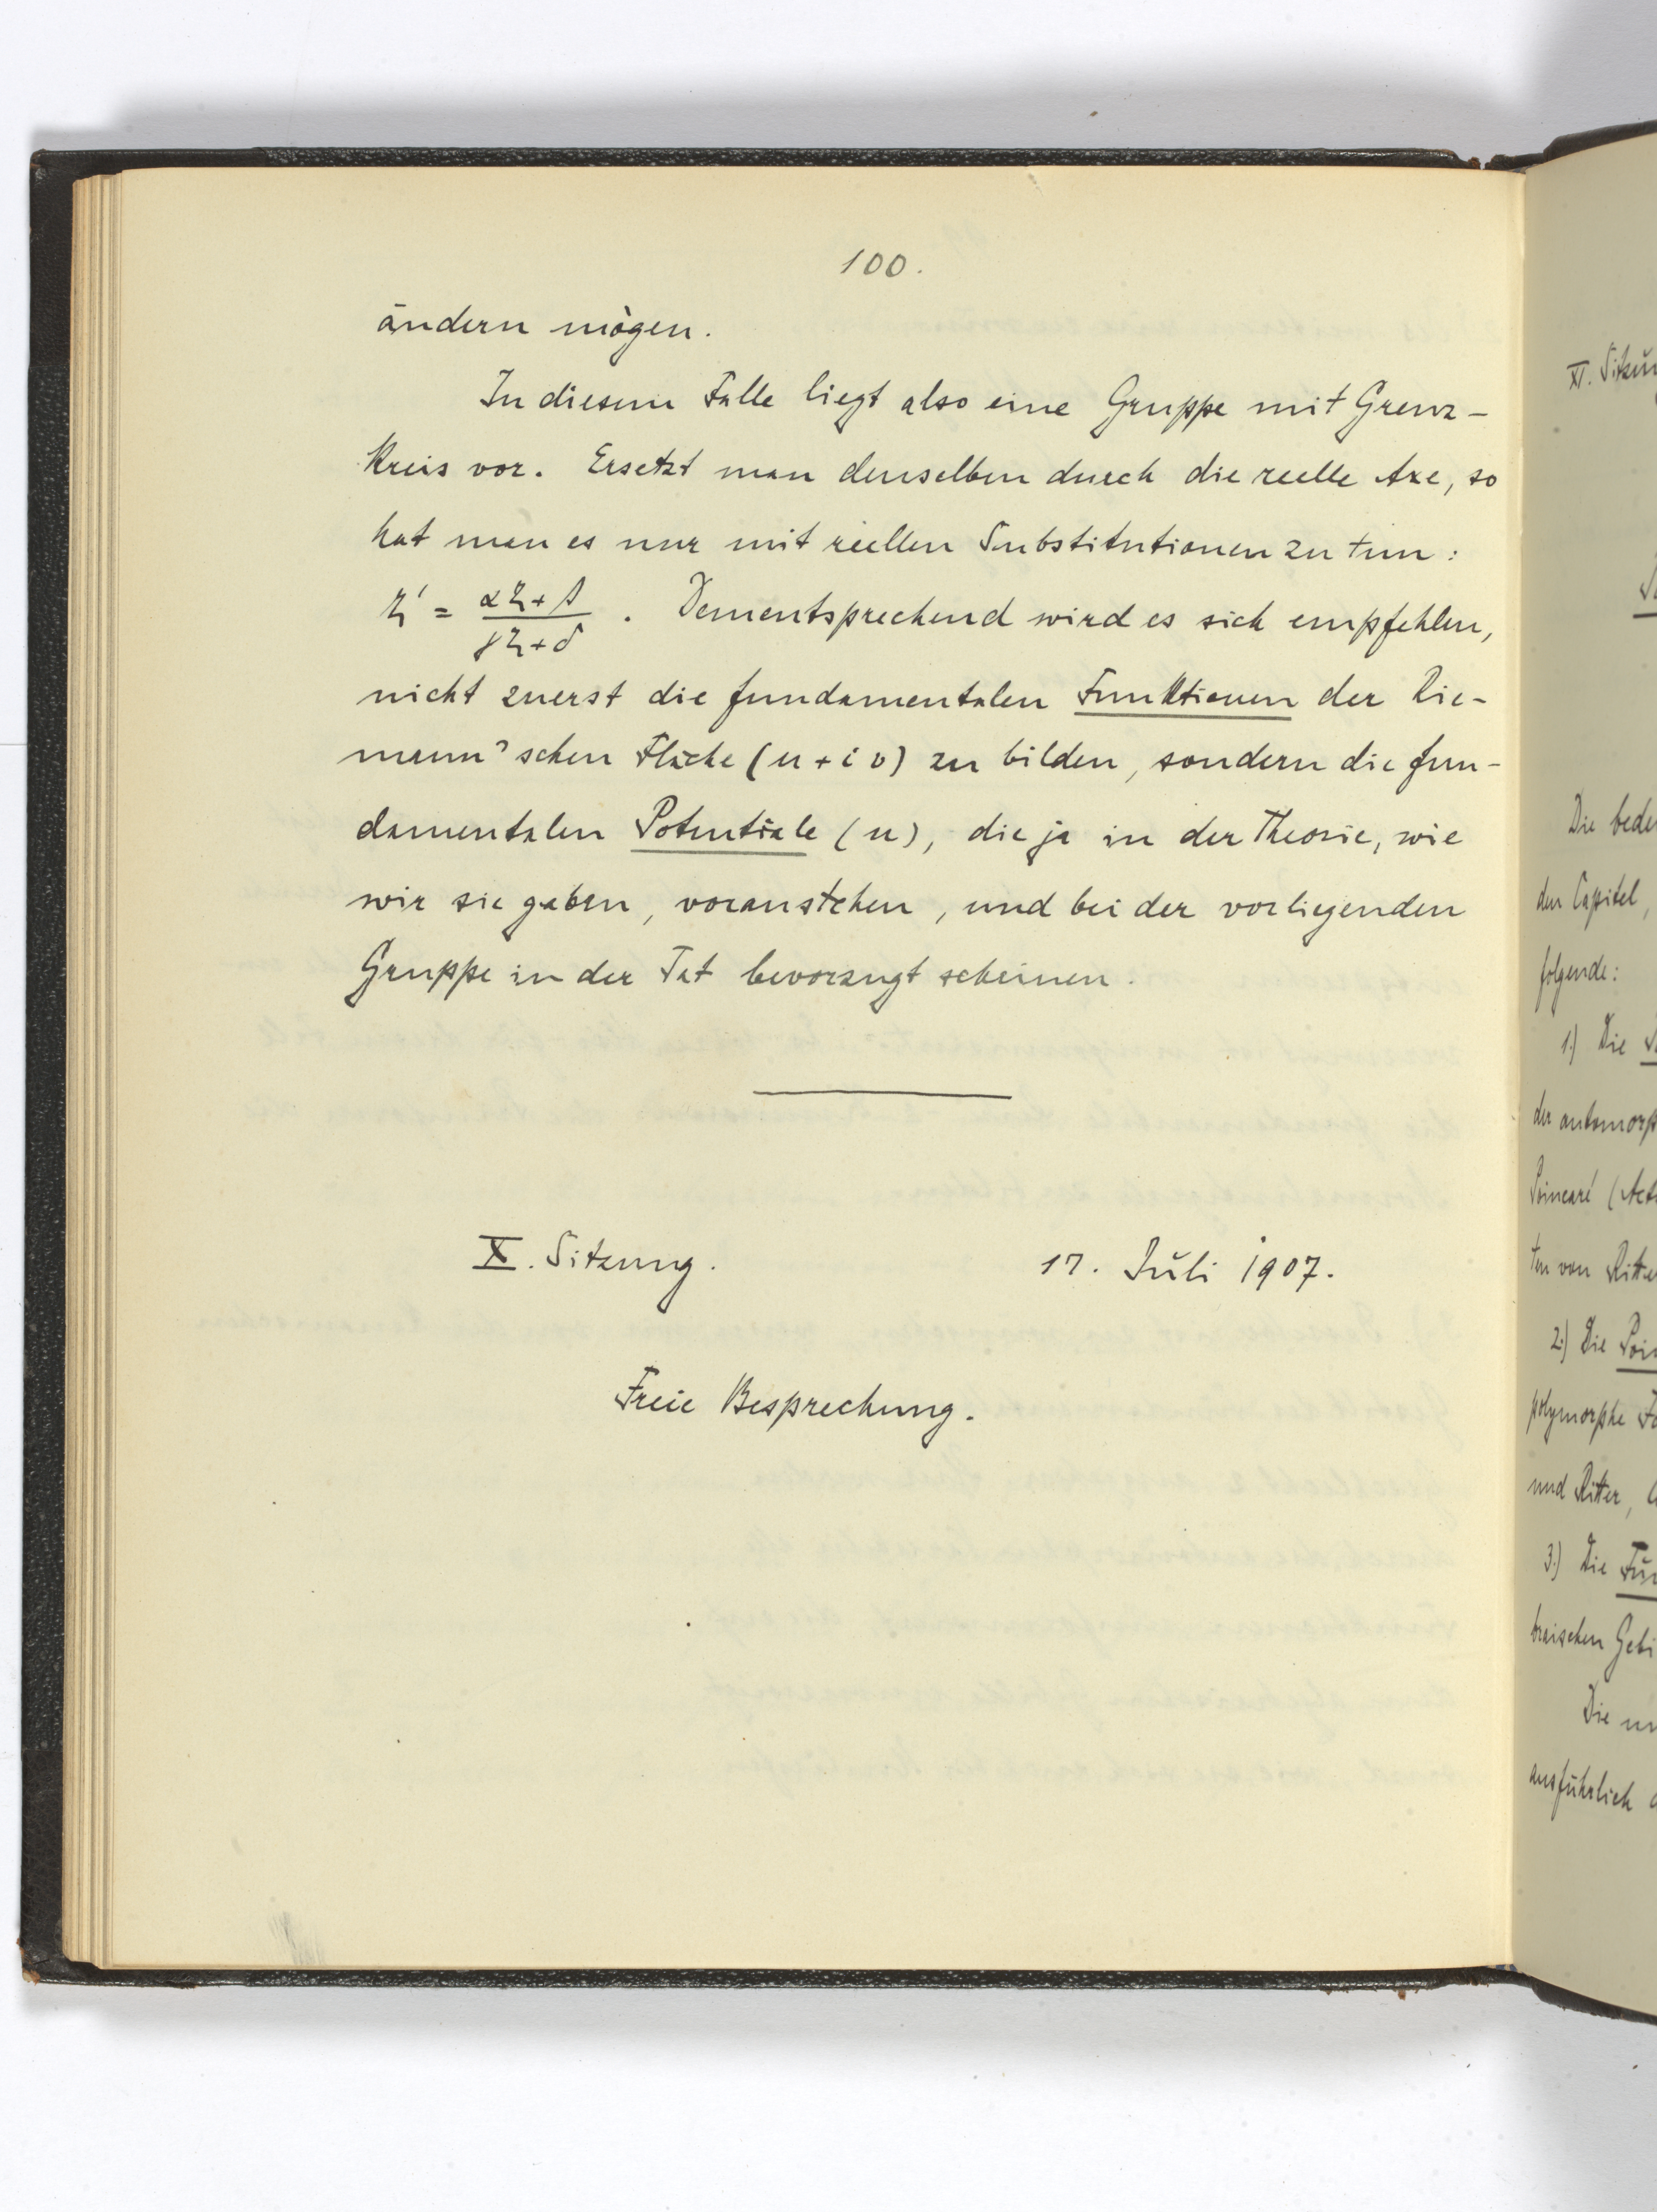 100.
ändern mögen.
In diesem Falle liegt also eine Gruppe mit Grenz-
kreis vor. Ersetzt man denselben durch die reelle Axe, so
hat man es nur mit reellen Substitutionen zu tun:
ζ' = (αζ+β)/(γζ+δ). Dementsprechend wird es sich empfehlen,
nicht zuerst die fundamentalen Funktionen der Rie-
mann'schen Fläche (u+iv) zu bilden, sondern die fun-
damentalen Potentiale (u), die ja in der Theorie, wie
wir sie gaben, voranstehen, und bei der vorliegenden
Gruppe in der Tat bevorzugt scheinen.
X. Sitzung. 17. Juli 1907.
Freie Besprechung.
XI.
Die
den Capitel,
folgende:
1.) Die
der
Poincaré
ten von
2.) Die
polymorphe
und Ritter,
3.) Die
Die
ausführlich